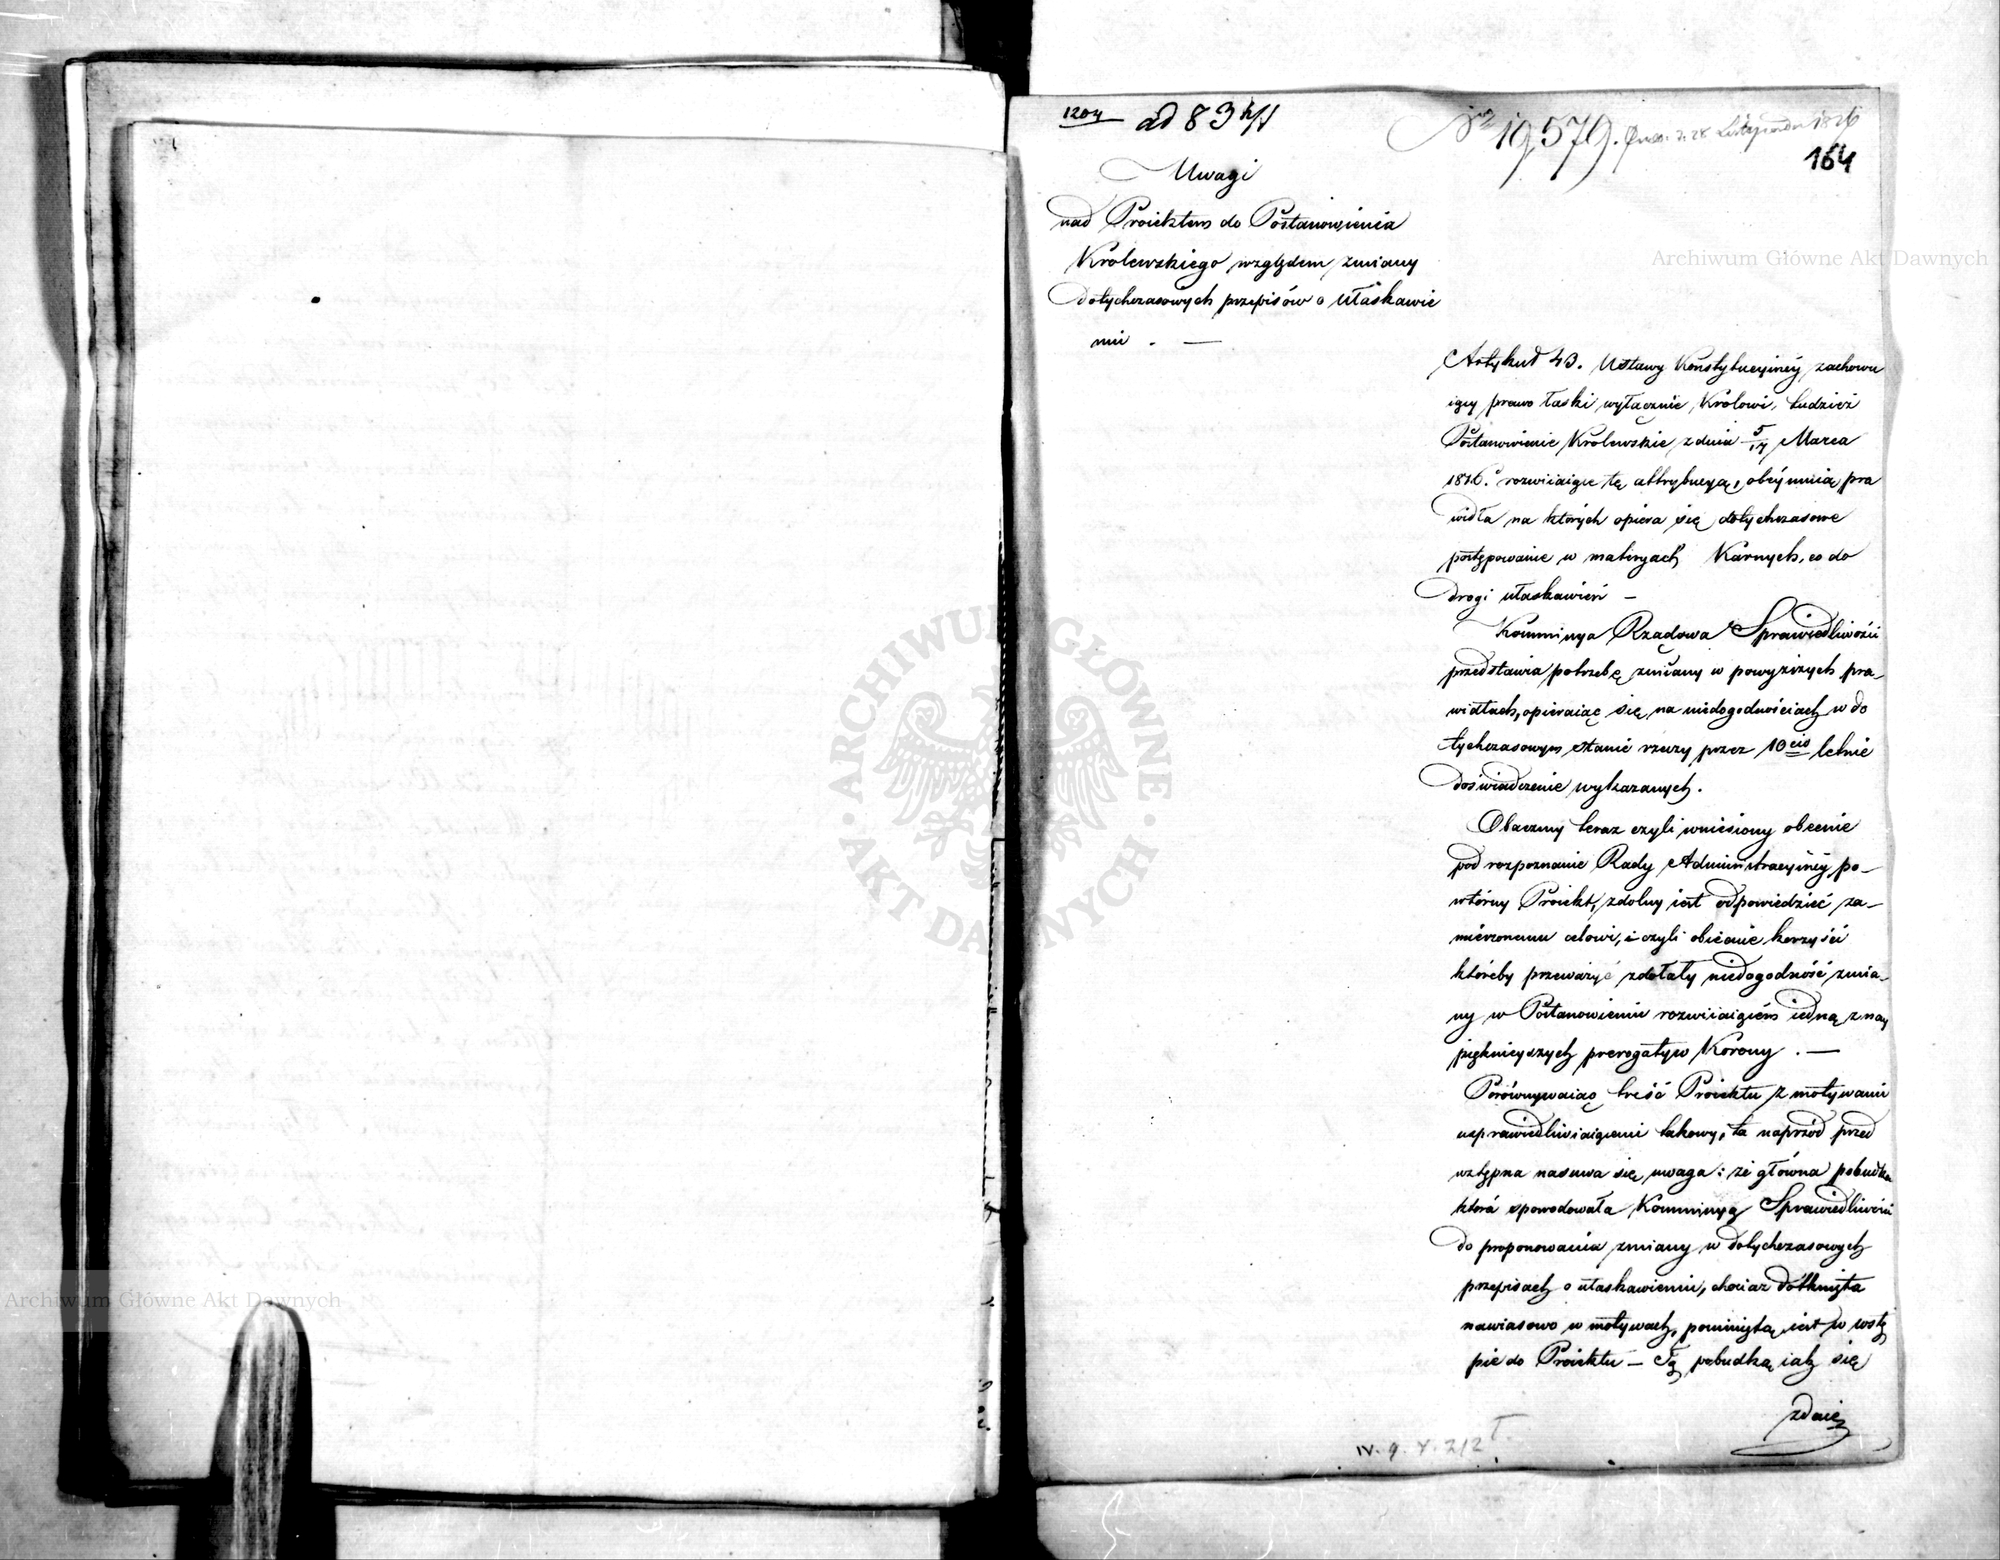 1204 ad 83
Nro 19579. Praes. d. 28 Listopada 1826
164
Uwagi
nad Proiektem do Postanowienia
Krolewskiego względem zmiany
dotychczasowych przepisów o ułaskawie
niu . —
Artykuł 43. Ustawy Konstytucyiney zachowu
iący prawo łaski wyłącznie Królowi, tudzież
Postanowienie Królewskie z dnia 5/17 Marca
1816. rozwiiaiące tę attrybucyą, obeymuią pra
widła na których opiera się dotychczasowe
postępowanie w materyach Karnych, co do
drogi ułaskawień —
Kommissya Rządowa Sprawiedliwości
przedstawia potrzebę zmiany w powyższych pra-
widłach, opieraiąc się na niedogodnościach w do
tychczasowym stanie rzeczy przez 10cio letnie
doświadczenie wykazanych.
Obaczmy teraz czyli wniesiony obecnie
pod rozpoznanie Rady Administracyiney po-
wtórny Proiekt, zdolny iest odpowiedzieć za-
mierzonemu celowi, i czyli obiecuie korzyści
któreby przeważyć zdołały niedogodność zmia-
ny w Postanowieniu rozwiiaiącem iedną z nay
pięknieyszych prerogatyw Korony . —
Porównywaiąc treść Proiektu z motywami
usprawiedliwiaiącemi takowy, ta naprzód przed
wstępna nasuwa się uwaga: że główna pobudka
która spowodowała Kommissyą Sprawiedliwości
do proponowania zmiany w dotychczasowych
przepisach o ułaskawieniu, chociaż dotknięta
nawiasowo w motywach, pominiętą iest w wstę
pie do Proiektu — Tą pobudką iak się
zdaie
IV. 9. Y. 212
Archiwum Główne Akt Dawnych
Archiwum Główne Akt Dawnych
ARCHIWUM GŁÓWNE
AKT DAWNYCH